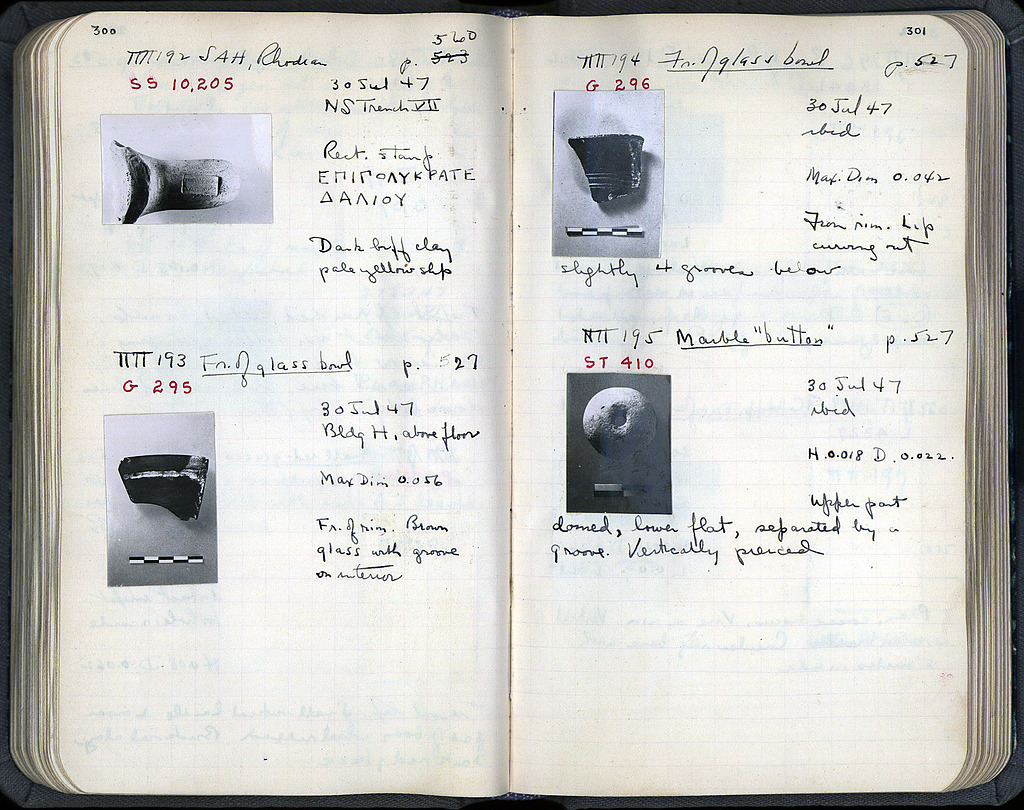 300
ΠΠ 192 SAH, Rhodian p. 523 560
SS 10,205
30 Jul 47
NS Trench VII
Rect. stamp
ΕΠΙΠΟΛΥΚΡΑΤΕ
ΔΑΛΙΟΥ
Dark buff clay
pale yellow slip
ΠΠ 193 Fr. of glass bowl p. 527
G 295
30 Jul 47
Bldg H, above floor
Max Dim 0.056
Fr. of rim. Brown
glass with groove
on interior
301
ΠΠ 194 Fr. of glass bowl p. 527
G 296
30 Jul 47
ibid
Max. Dim 0.042
From rim. Lip
curving out
slightly. 4 grooves below
ΠΠ 195 Marble "button" p. 527
ST 410
30 Jul 47
ibid
H. 0.018 D. 0.022.
Upper part
domed, lower flat, separated by a
groove. Vertically pierced